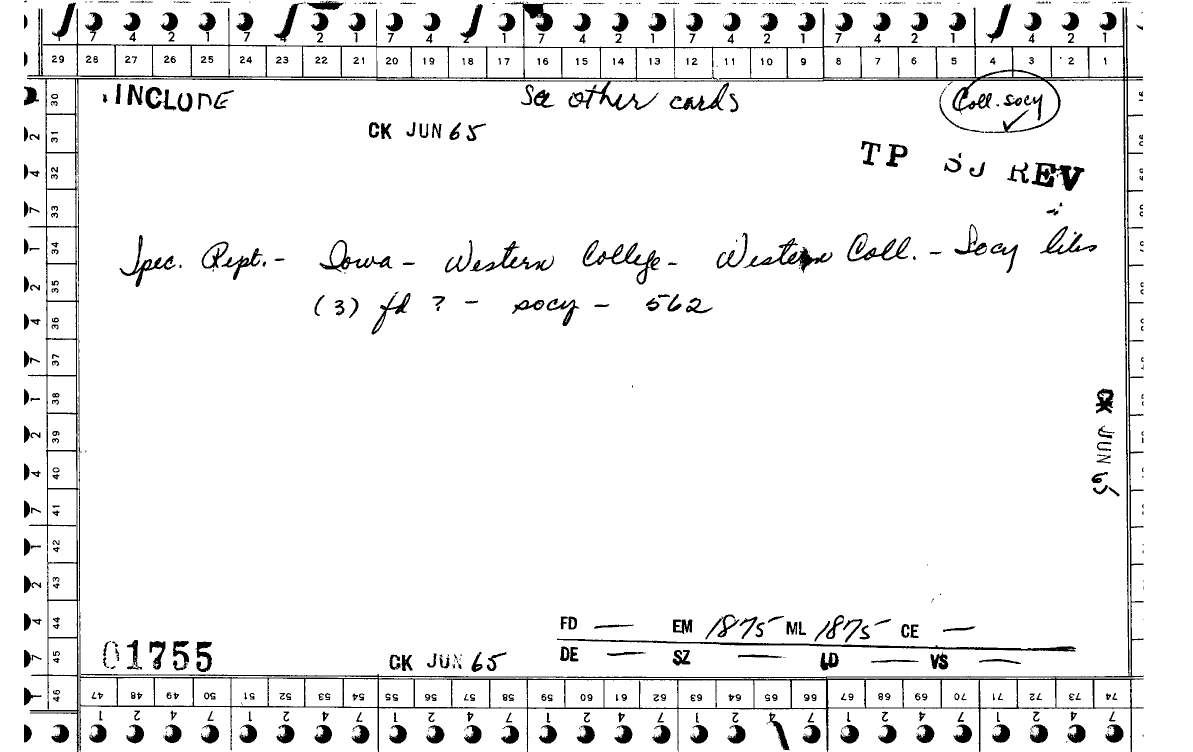 7 4 2 1 7 4 2 1 7 4 2 1 7 4 2 1 7 4 2 1 7 4 2 1 7 4 2 1
29 28 27 26 25 24 23 22 21 20 19 18 17 16 15 14 13 12 11 10 9 8 7 6 5 4 3 2 1
INCLUDE See other cards Coll. socy
CK JUN 65
TP SJ REV
Spec. Rept. - Iowa - Western College - Western Coll. - Socy libs
(3) fd ? - socy - 562
CK JUN 65
FD — EM 1875 ML 1875 CE —
DE — SZ — LD — VS —
01755 CK JUN 65
30 31 32 33 34 35 36 37 38 39 40 41 42 43 44 45 46
47 48 49 50 51 52 53 54 55 56 57 58 59 60 61 62 63 64 65 66 67 68 69 70 71 72 73 74
1 2 4 7 1 2 4 7 1 2 4 7 1 2 4 7 1 2 4 7 1 2 4 7 1 2 4 7